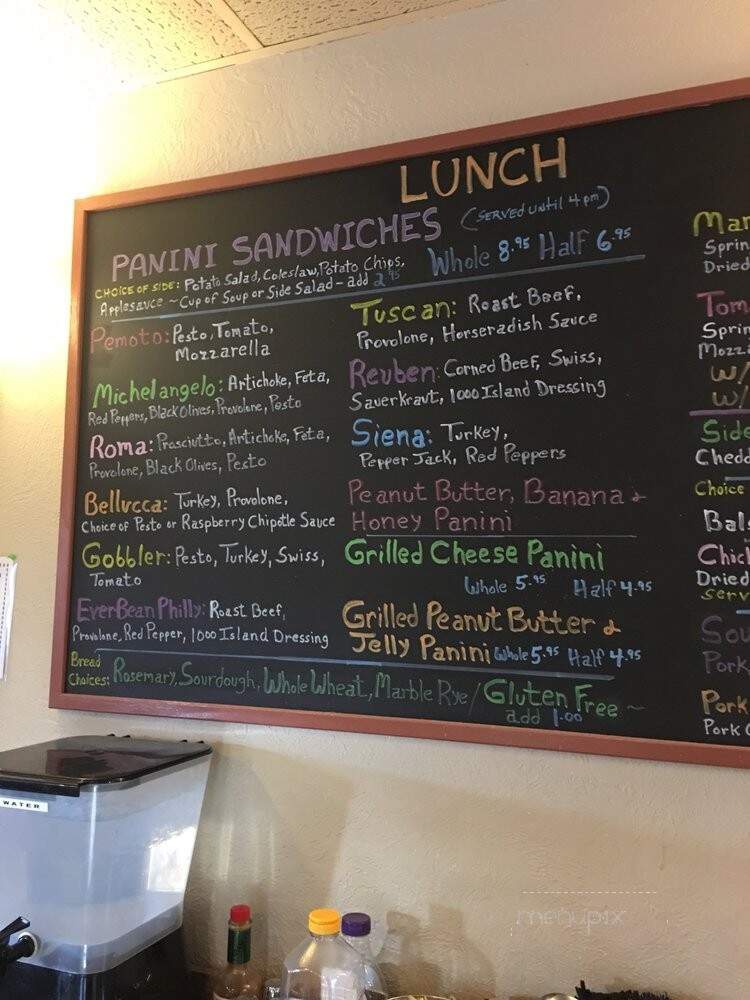 LUNCH
(SERVED until 4 pm)
PANINI SANDWICHES
Whole 8.95 Half 6.95
CHOICE OF SIDE: Potato Salad, Coleslaw, Potato Chips,
Applesauce ~ Cup of Soup or Side Salad - add 2.95
Pemoto: Pesto, Tomato,
Mozzarella
Michelangelo: Artichoke, Feta,
Red Peppers, Black Olives, Provolone, Pesto
Roma: Prosciutto, Artichoke, Feta,
Provolone, Black Olives, Pesto
Bellucca: Turkey, Provolone,
Choice of Pesto or Raspberry Chipotle Sauce
Gobbler: Pesto, Turkey, Swiss,
Tomato
EverBean Philly: Roast Beef,
Provolone, Red Pepper, 1000 Island Dressing
Tuscan: Roast Beef,
Provolone, Horseradish Sauce
Reuben: Corned Beef, Swiss,
Sauerkraut, 1000 Island Dressing
Siena: Turkey,
Pepper Jack, Red Peppers
Peanut Butter, Banana &
Honey Panini
Grilled Cheese Panini
Whole 5.95 Half 4.95
Grilled Peanut Butter &
Jelly Panini Whole 5.95 Half 4.95
Bread
Choices: Rosemary, Sourdough, Whole Wheat, Marble Rye / Gluten Free ~
add 1.00
Mar
Sprin
Dried
Tom
Sprin
Mozz
w/
w/
Side
Chedd
Choice
Bals
Chic
Dried
serv
Sou
Pork
Pork
Pork
WATER
menupix